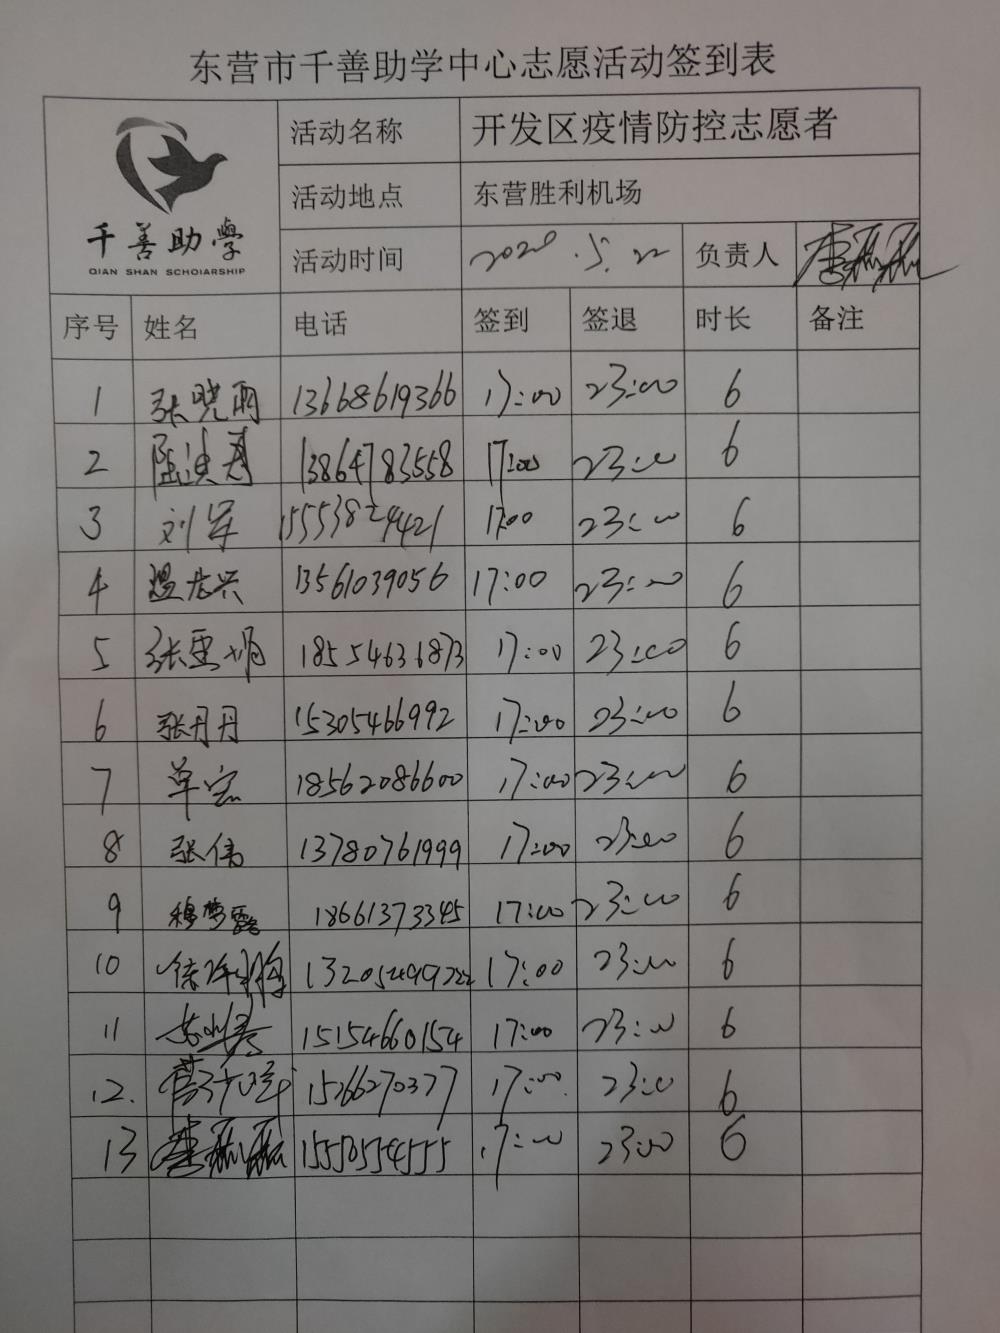 东营市千善助学中心志愿活动签到表
千善助學
QIAN SHAN SCHOIARSHIP
活动名称 开发区疫情防控志愿者
活动地点 东营胜利机场
活动时间 2020.5.22 负责人
序号 姓名 电话 签到 签退 时长 备注
1 张晓雨 13668619366 17:00 23:00 6
2 13864783558 17:00 23:00 6
3 刘军 15553824421 17:00 23:00 6
4 13561039056 17:00 23:00 6
5 张雪娟 18554631873 17:00 23:00 6
6 张丹丹 15305466992 17:00 23:00 6
7 单宏 18562086600 17:00 23:00 6
8 张伟 13780761999 17:00 23:00 6
9 穆梦露 18661373345 17:00 23:00 6
10 17:00 23:00 6
11 15154660154 17:00 23:00 6
12. 15266270377 17:00 23:00 6
13 17:00 23:00 6